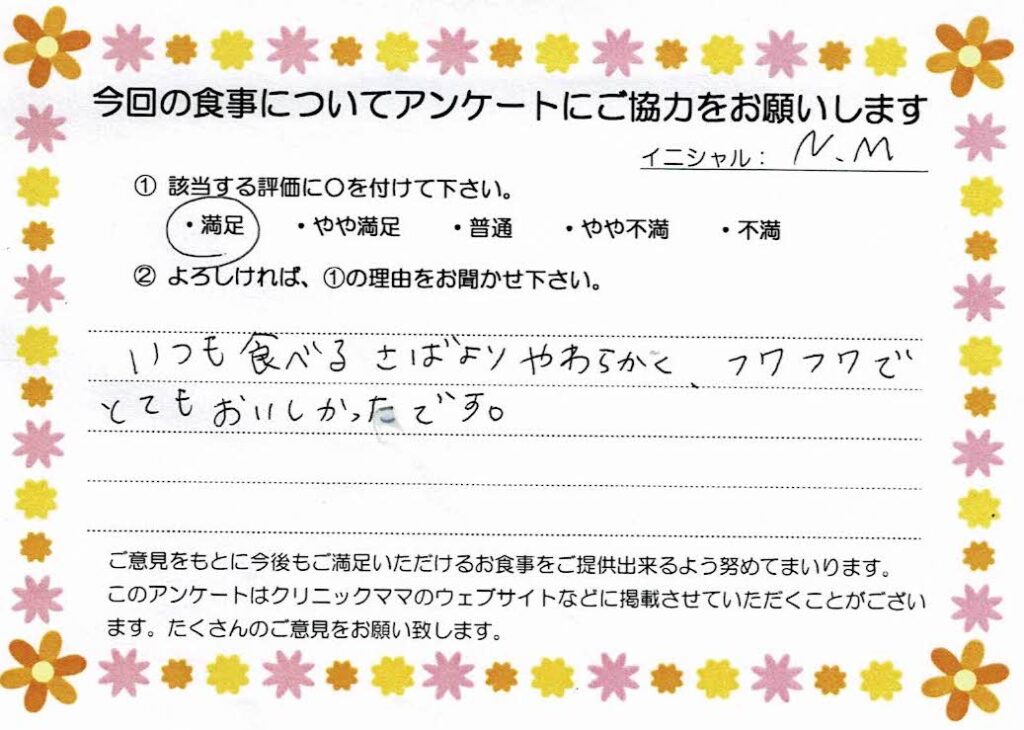 今回の食事についてアンケートにご協力をお願いします
イニシャル： N.M
① 該当する評価に〇を付けて下さい。
・満足 ・やや満足 ・普通 ・やや不満 ・不満
② よろしければ、①の理由をお聞かせ下さい。
いつも食べるさばよりやわらかく、フワフワで
とてもおいしかったです。
ご意見をもとに今後もご満足いただけるお食事をご提供出来るよう努めてまいります。
このアンケートはクリニックママのウェブサイトなどに掲載させていただくことがござい
ます。たくさんのご意見をお願い致します。